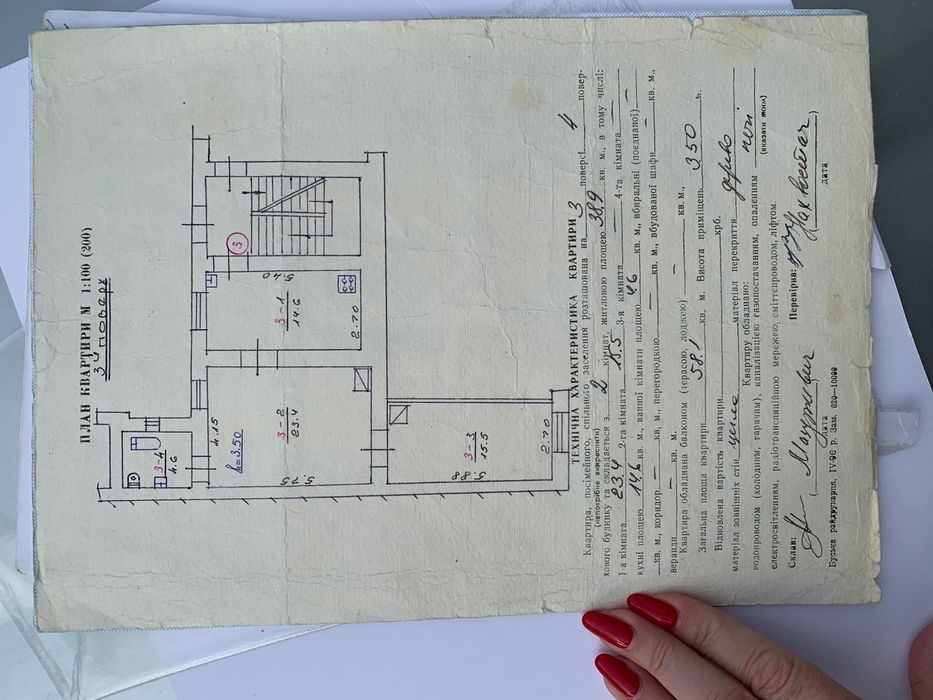 ПЛАН КВАРТИРИ М 1:100 (200)
3й поверх
3
5.40
3-1
14.6
2.70
4.15
h=3.50
3-2
23.4
5.75
3-4
4.6
3-3
15.5
5.88
2.70
ТЕХНІЧНА ХАРАКТЕРИСТИКА КВАРТИРИ 3
Квартира, посімейного, спільного заселення розташована на 3 поверсі 4 повер-
(непотрібне викреслити)
хового будинку та складається з 2 кімнат, житловою площею 38.9 кв. м., в тому числі:
1-а кімната 23,4 2-га кімната 15.5 3-я кімната — 4-та кімната —
кухні площею 14.6 кв. м., ванної кімнати площею 4.6 кв. м., вбиральні (поєднаної)
— кв. м., коридор — кв, м., перегородкою — кв. м., вбудованої шафи — кв. м.,
веранди — кв. м.
Квартира обладнана балконом (терасою, лоджею) — кв. м.,
Загальна площа квартири 58.1 кв. м. Висота приміщень 3.50 м.
Відновлена вартість квартири крб.
матеріал зовнішніх стін цегла матеріал перекриття дерево
Квартиру обладнано:
водопроводом (холодним, гарячим), каналізацією газопостачанням, опаленням печі
(вказати яким)
електросвітленням, радіотрансляційною мережею, сміттєпроводом, ліфтом.
Склав: Перевірив:
дата дата
Буська райдрукарня, IV-96 р. Зам. 620—10000